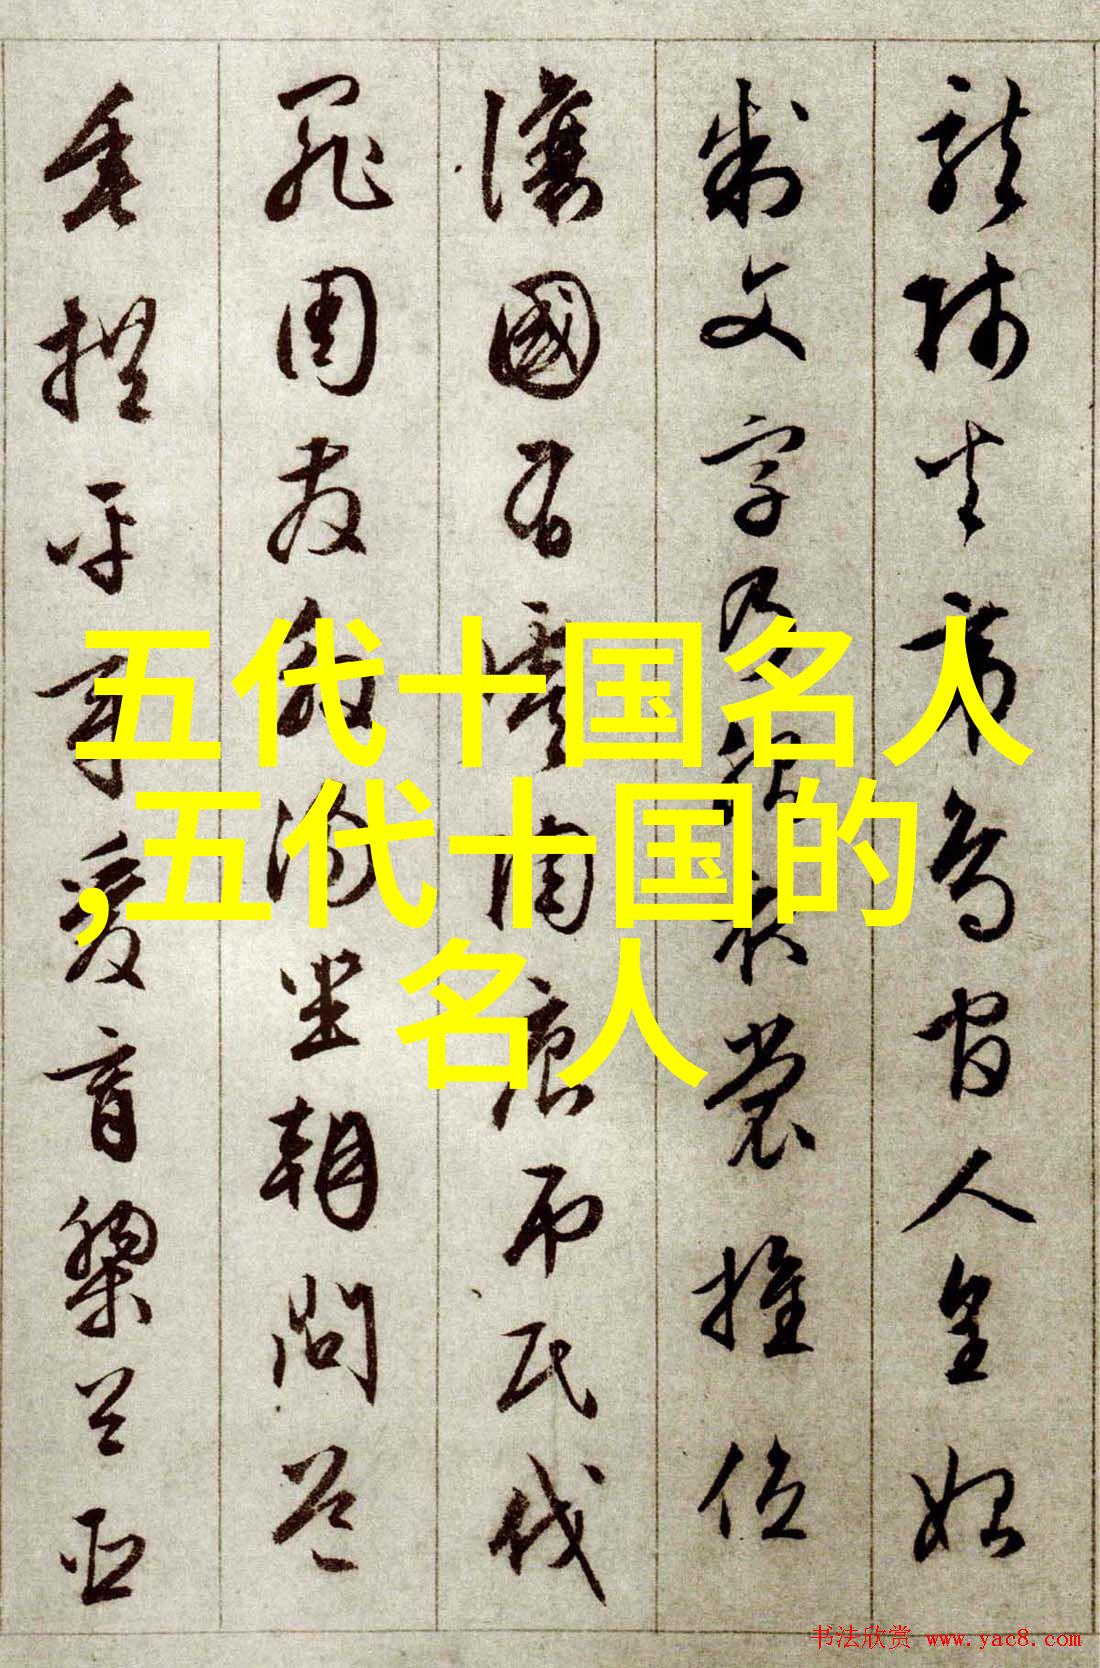 龍師火帝鳥官人皇始
制文字乃服衣裳推位
讓國有虞陶唐弔民伐
罪周發殷湯坐朝問道
垂拱平章愛育黎首臣
五代十国名人
,五代十国的
名人
书法欣赏 www.yac8.com